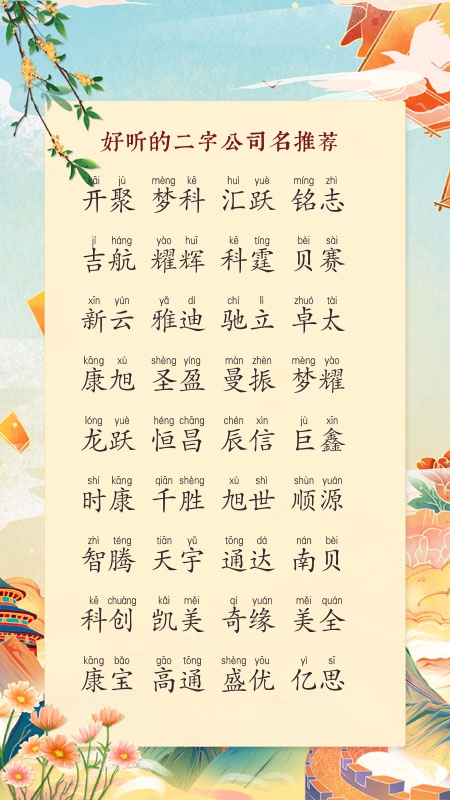 好听的二字公司名推荐
kāi jù mèng kē huì yuè míng zhì
开聚 梦科 汇跃 铭志
jí háng yào huī kē tíng bèi sài
吉航 耀辉 科霆 贝赛
xīn yún yǎ dí chí lì zhuó tài
新云 雅迪 驰立 卓太
kāng xù shèng yíng màn zhèn mèng yào
康旭 圣盈 曼振 梦耀
lóng yuè héng chāng chén xìn jù xīn
龙跃 恒昌 辰信 巨鑫
shí kāng qiān shèng xù shì shùn yuán
时康 千胜 旭世 顺源
zhì téng tiān yǔ tōng dá nán bèi
智腾 天宇 通达 南贝
kē chuàng kǎi měi qí yuán měi quán
科创 凯美 奇缘 美全
kāng bǎo gāo tōng shèng yōu yì sī
康宝 高通 盛优 亿思